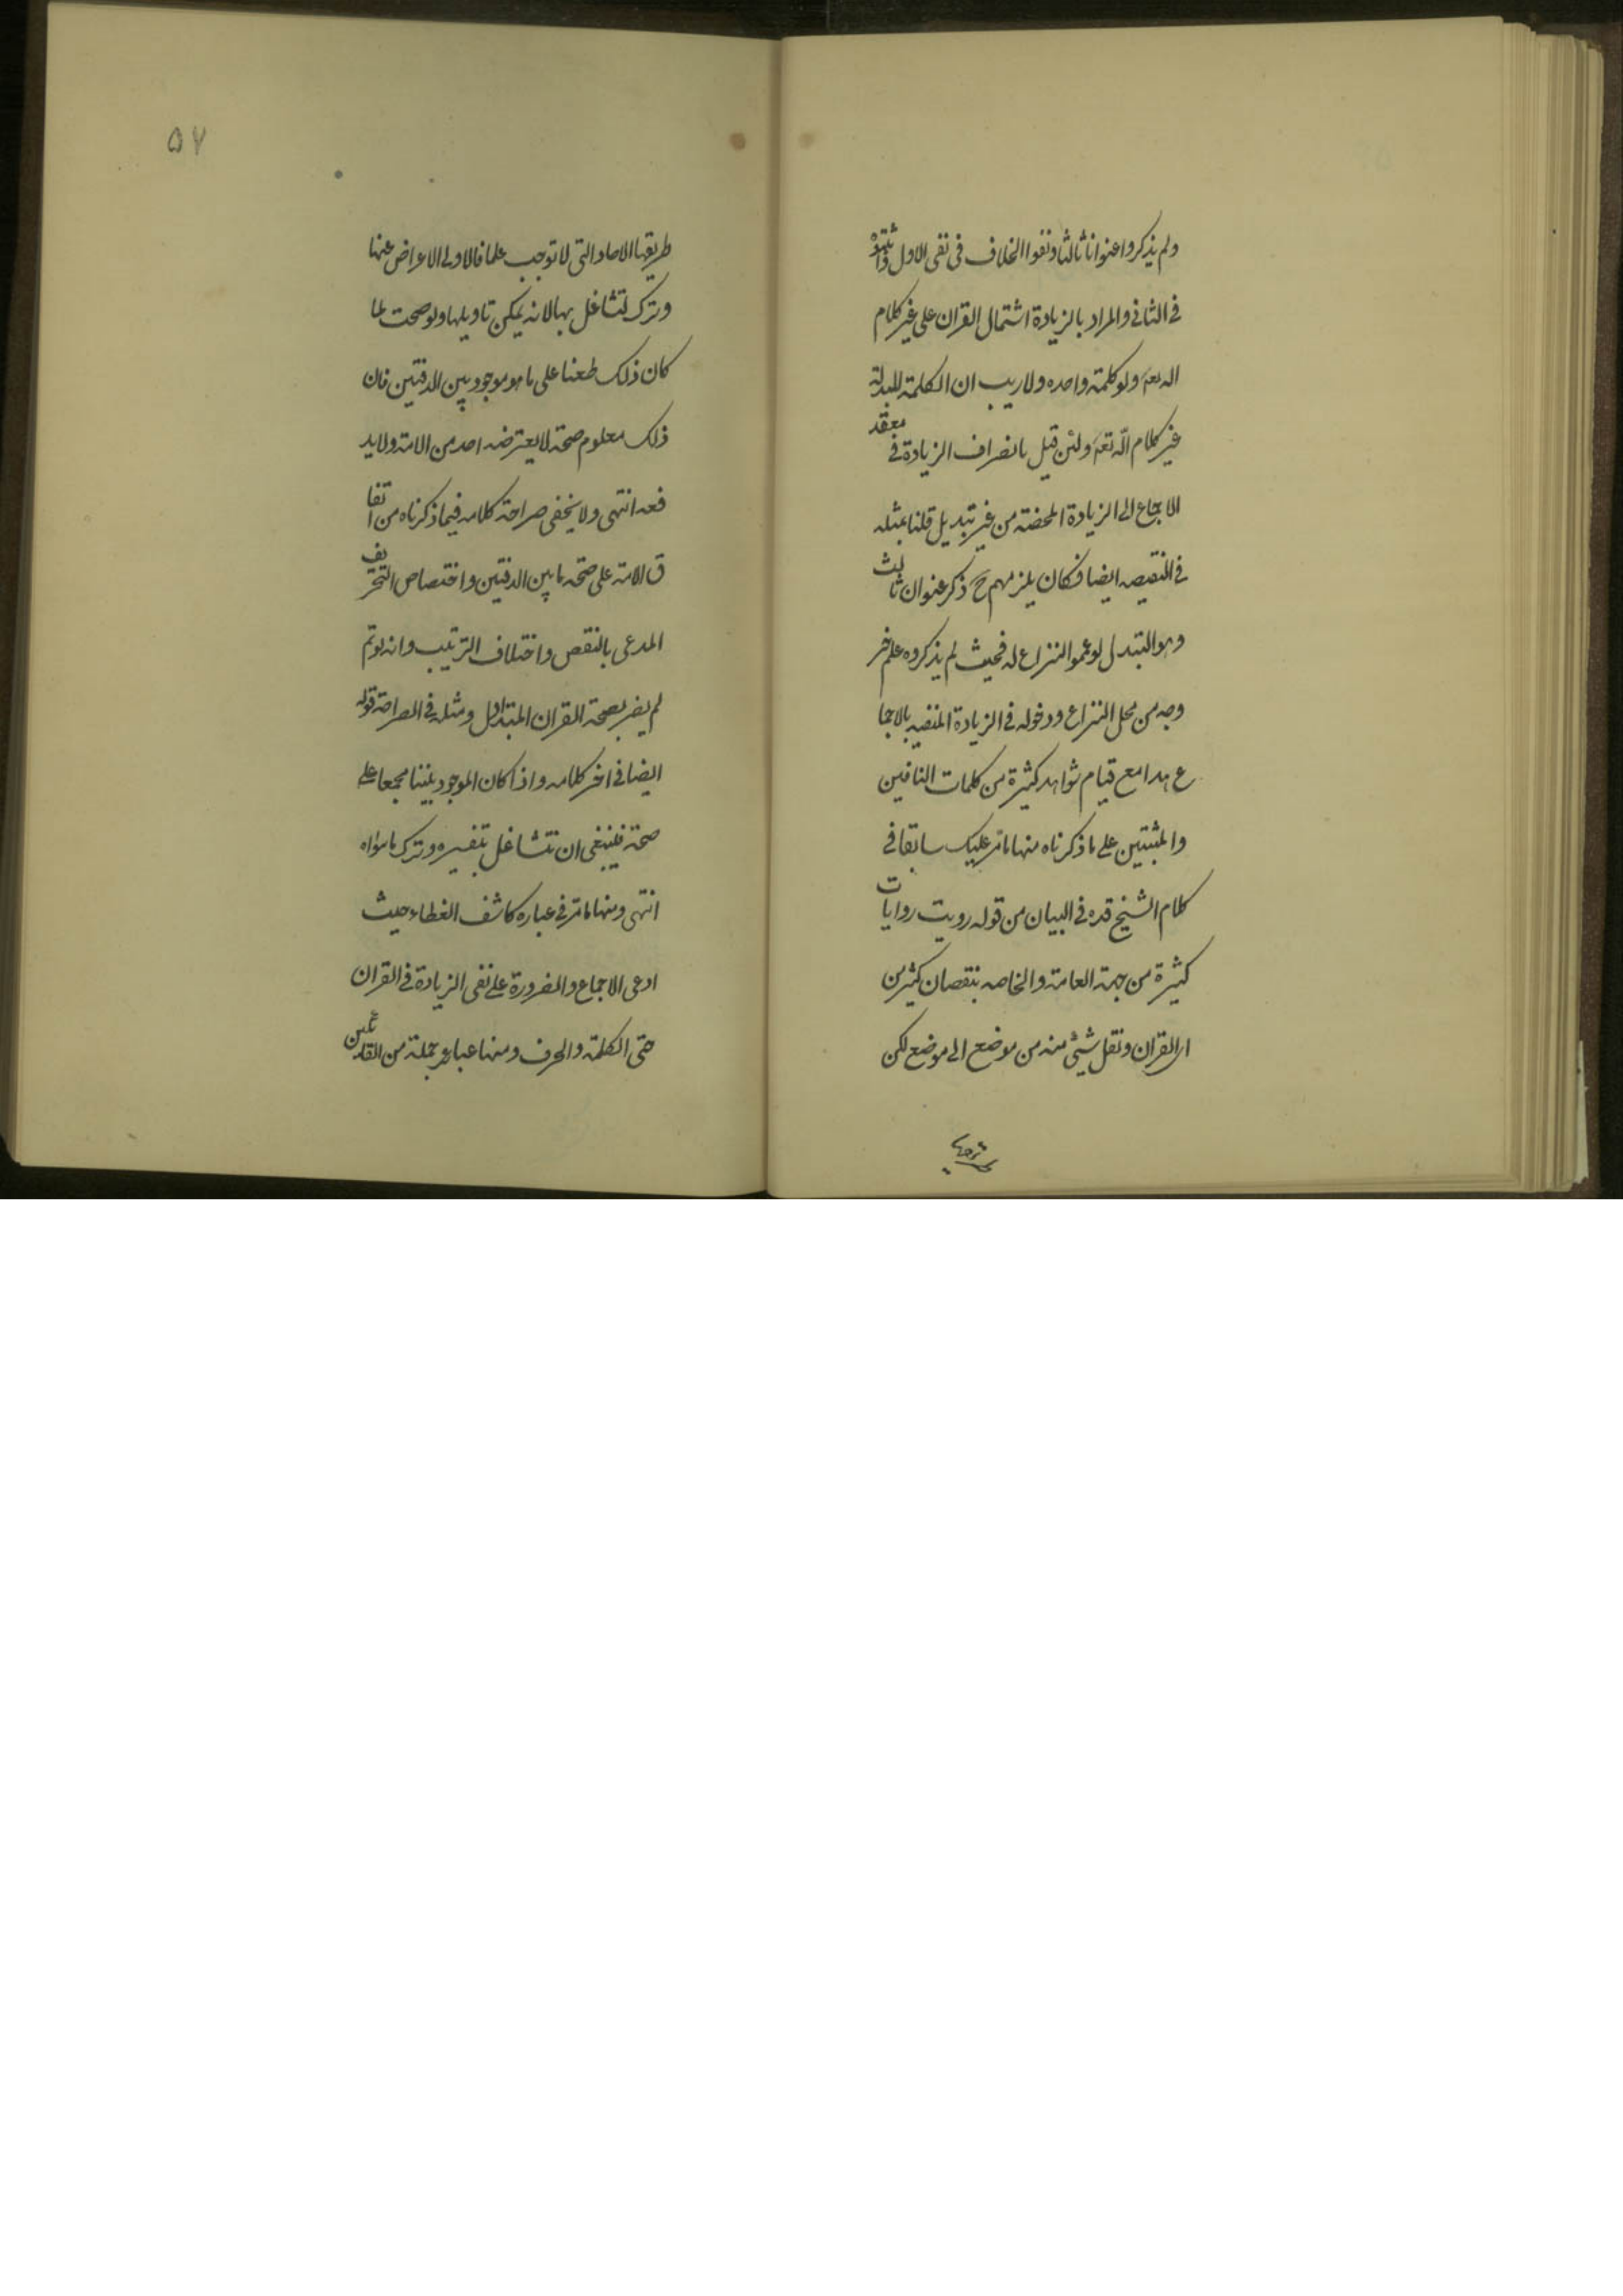 ولم يذكروا عنوانا ثالثا ونفوا الخلاف فى نفى الاول واثبتوه
فى الثانى والمراد بالزيادة اشتمال القران على غير كلام
الله تعه ولو كلمة واحده ولا ريب ان الكلمة المبدلة
غير كلام الله تعه ولئن قيل بانصراف الزيادة فى معقد
الاجماع الى الزيادة المحضة من غير تبديل قلنا بمثله
فى النقيصه ايضا فكان يلزمهم ح ذكر عنوان ثالث
وهو التبدل لو عموا النزاع له فحيث لم يذكروه علم خر
وجه من محل النزاع ودخوله فى الزيادة المنفيه بالاجما
ع هدا مع قيام شواهد كثيرة من كلمات النافين
والمثبتين على ما ذكرناه منها ما مر عليك سابقا فى
كلام الشيخ قده فى البيان من قوله رويت روايات
كثيرة من جهة العامة والخاصه بنقصان كثير من
اى القران ونقل شيئ منه من موضع الى موضع لكن
طريقها
۵۷
طريقها الاحاد التى لا توجب علما فالاولى الاعراض عنها
وترك التشاغل بها لانه يمكن تاويلها ولو صحت لما
كان ذلك طعنا على ما هو موجود بين الدفتين فان
ذلك معلوم صحته لا يعترضه احد من الامة ولا يد
فعه انتهى ولا يخفى صراحة كلامه فيما ذكرناه من اتفا
ق الامة على صحة ما بين الدفتين واختصاص التحريف
المدعى بالنقص واختلاف الترتيب وانه لو تم
لم يضر بصحة القران المتداول ومثله فى الصراحة قوله
ايضا فى اخر كلامه واذا كان الموجود بيننا مجمعا على
صحته فينبغى ان نتشاغل بتفسيره ونترك ما سواه
انتهى ومنها ما مر فى عباره كاشف الغطاء حيث
ادعى الاجماع والضرورة على نفى الزيادة فى القران
حتى الكلمة والحرف ومنها عباير جملة من القائلين